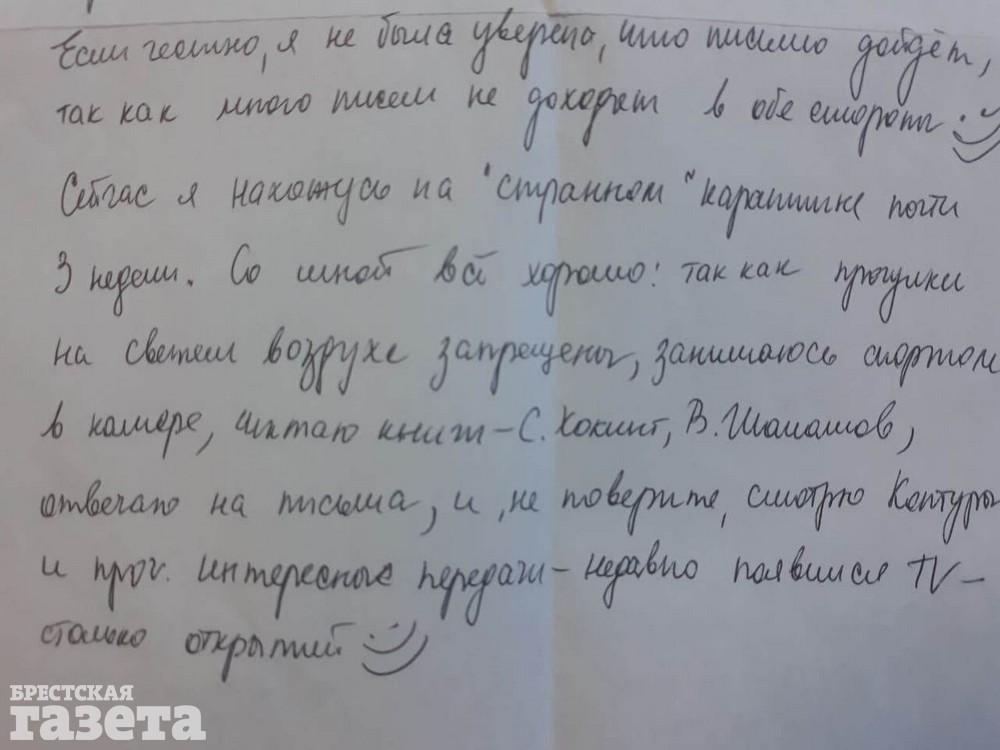 Если честно, я не была уверена, что письмо дойдёт,
так как много писем не доходят в обе стороны :))
Сейчас я нахожусь на "странном" карантине почти
3 недели. Со мной всё хорошо: так как прогулки
на свежем воздухе запрещены, занимаюсь спортом
в камере, читаю книги – С. Хокинг, В. Шаламов,
отвечаю на письма, и, не поверите, смотрю Контуры
и проч. интересные передачи – недавно появился TV –
столько открытий :))
БРЕСТСКАЯ
газета